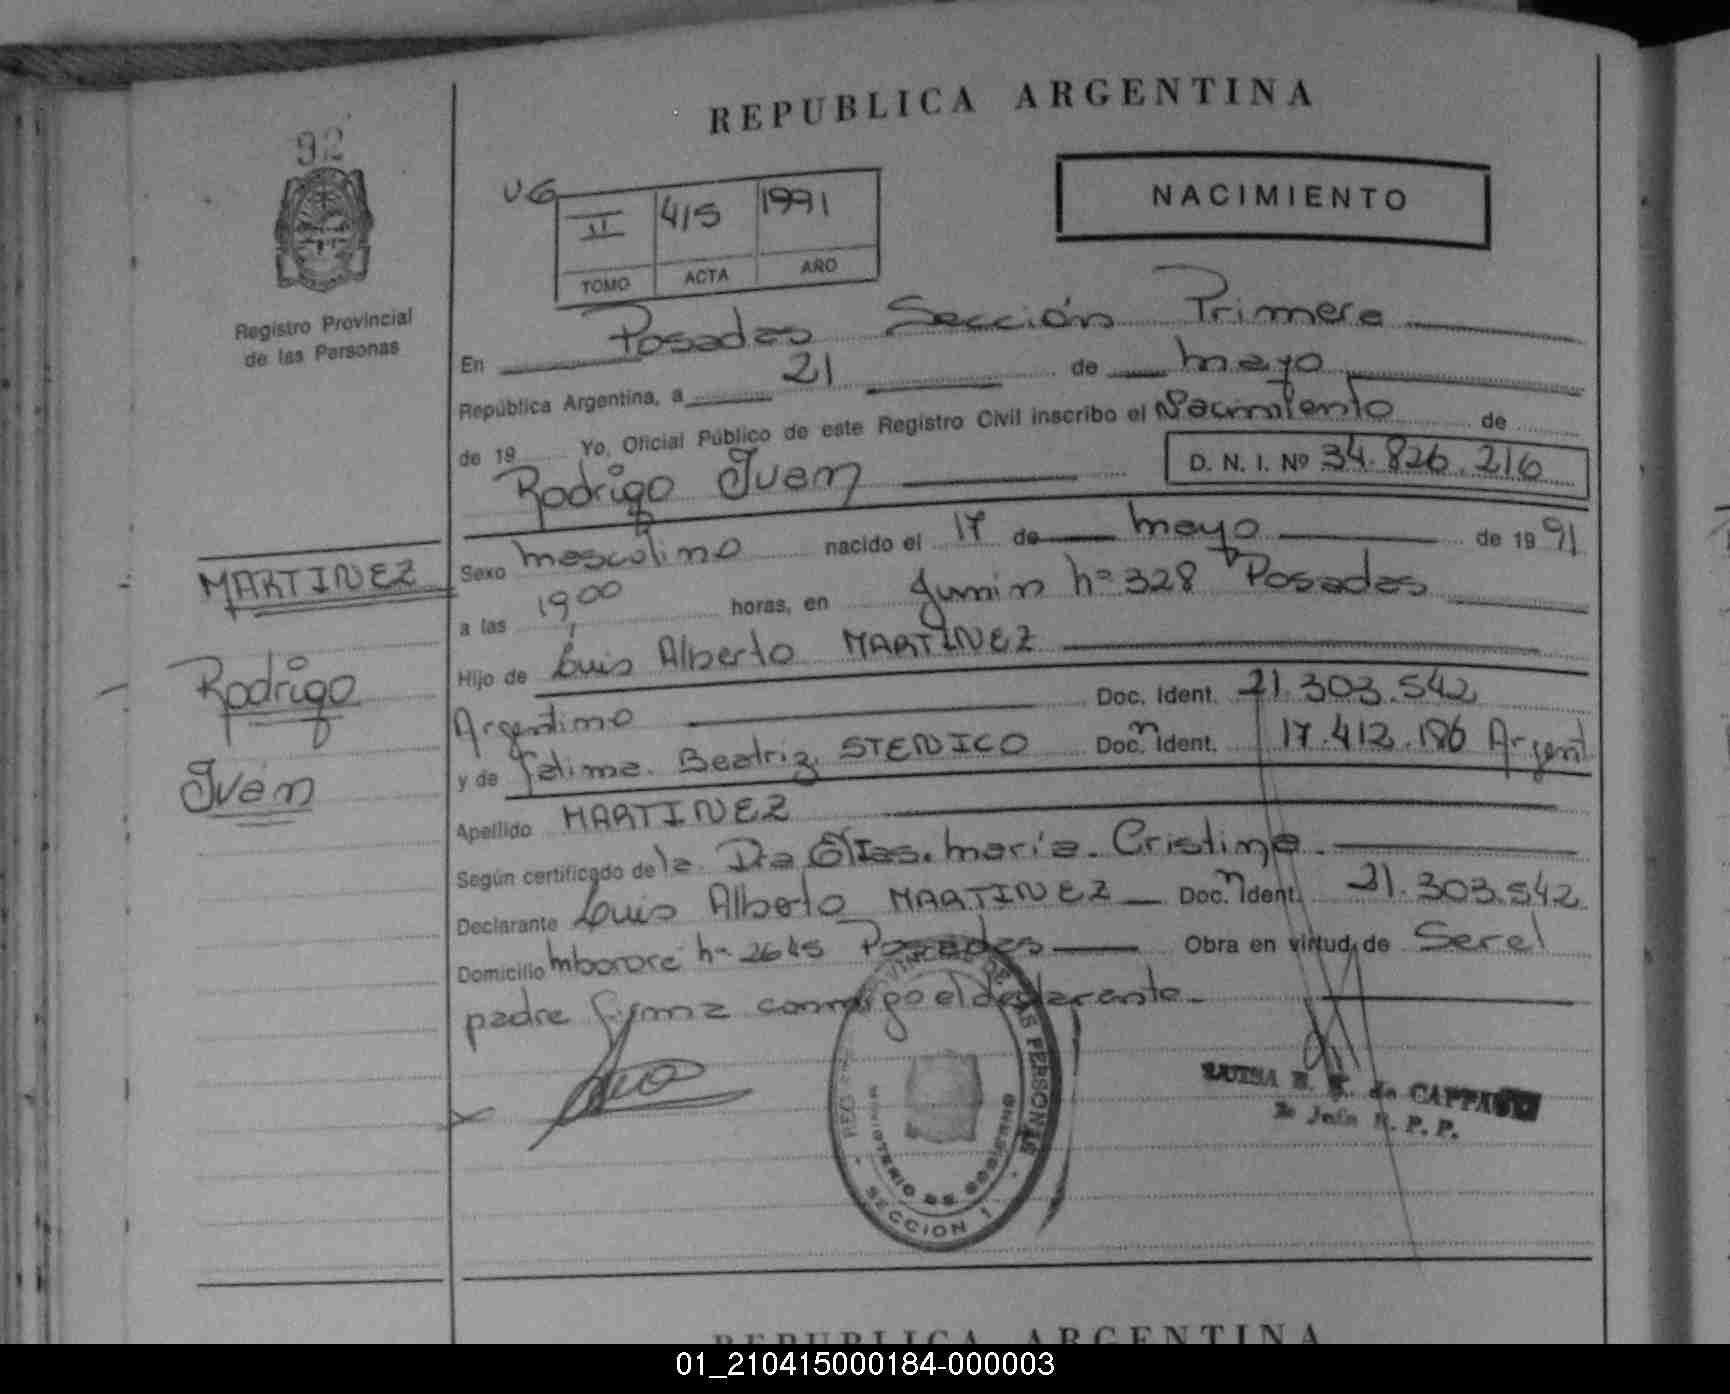 REPUBLICA ARGENTINA
92
UG
II 415 1991
TOMO ACTA AÑO
NACIMIENTO
Registro Provincial
de las Personas
En Posadas Sección Primera
República Argentina, a 21 de mayo
de 19 Yo, Oficial Público de este Registro Civil inscribo el Nacimiento de
Rodrigo Iván D. N. I. Nº 34.826.216
MARTINEZ
Rodrigo
Iván
Sexo masculino nacido el 17 de mayo de 1991
a las 19,00 horas, en Junin nº 328 Posadas
Hijo de Luis Alberto MARTINEZ
Argentino Doc. Ident. 21.303.542
y de Fatima Beatriz STENICO Doc. Ident. 17.412.186 Argent
Apellido MARTINEZ
Según certificado de la Dra María Cristina
Declarante Luis Alberto MARTINEZ Doc. Ident. 21.303.542
Domicilio Mbororé nº 2645 Posadas Obra en virtud de Ser el
padre firma conmigo el declarante
REG PROVINCIAL DE LAS PERSONAS
MINISTERIO DE GOBIERNO
SECCION 1
LUISA de CAPPA
Jefe R. P. P.
REPUBLICA ARGENTINA
01_210415000184-000003